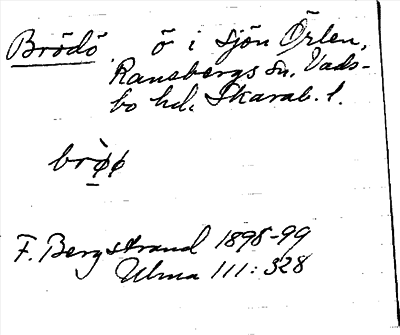 Brödö ö i sjön Örlen,
Ransbergs sn. Vads-
bo hd. Skarab. l.
brø̀ø
F. Bergstrand 1898-99
Ulma 111: 328